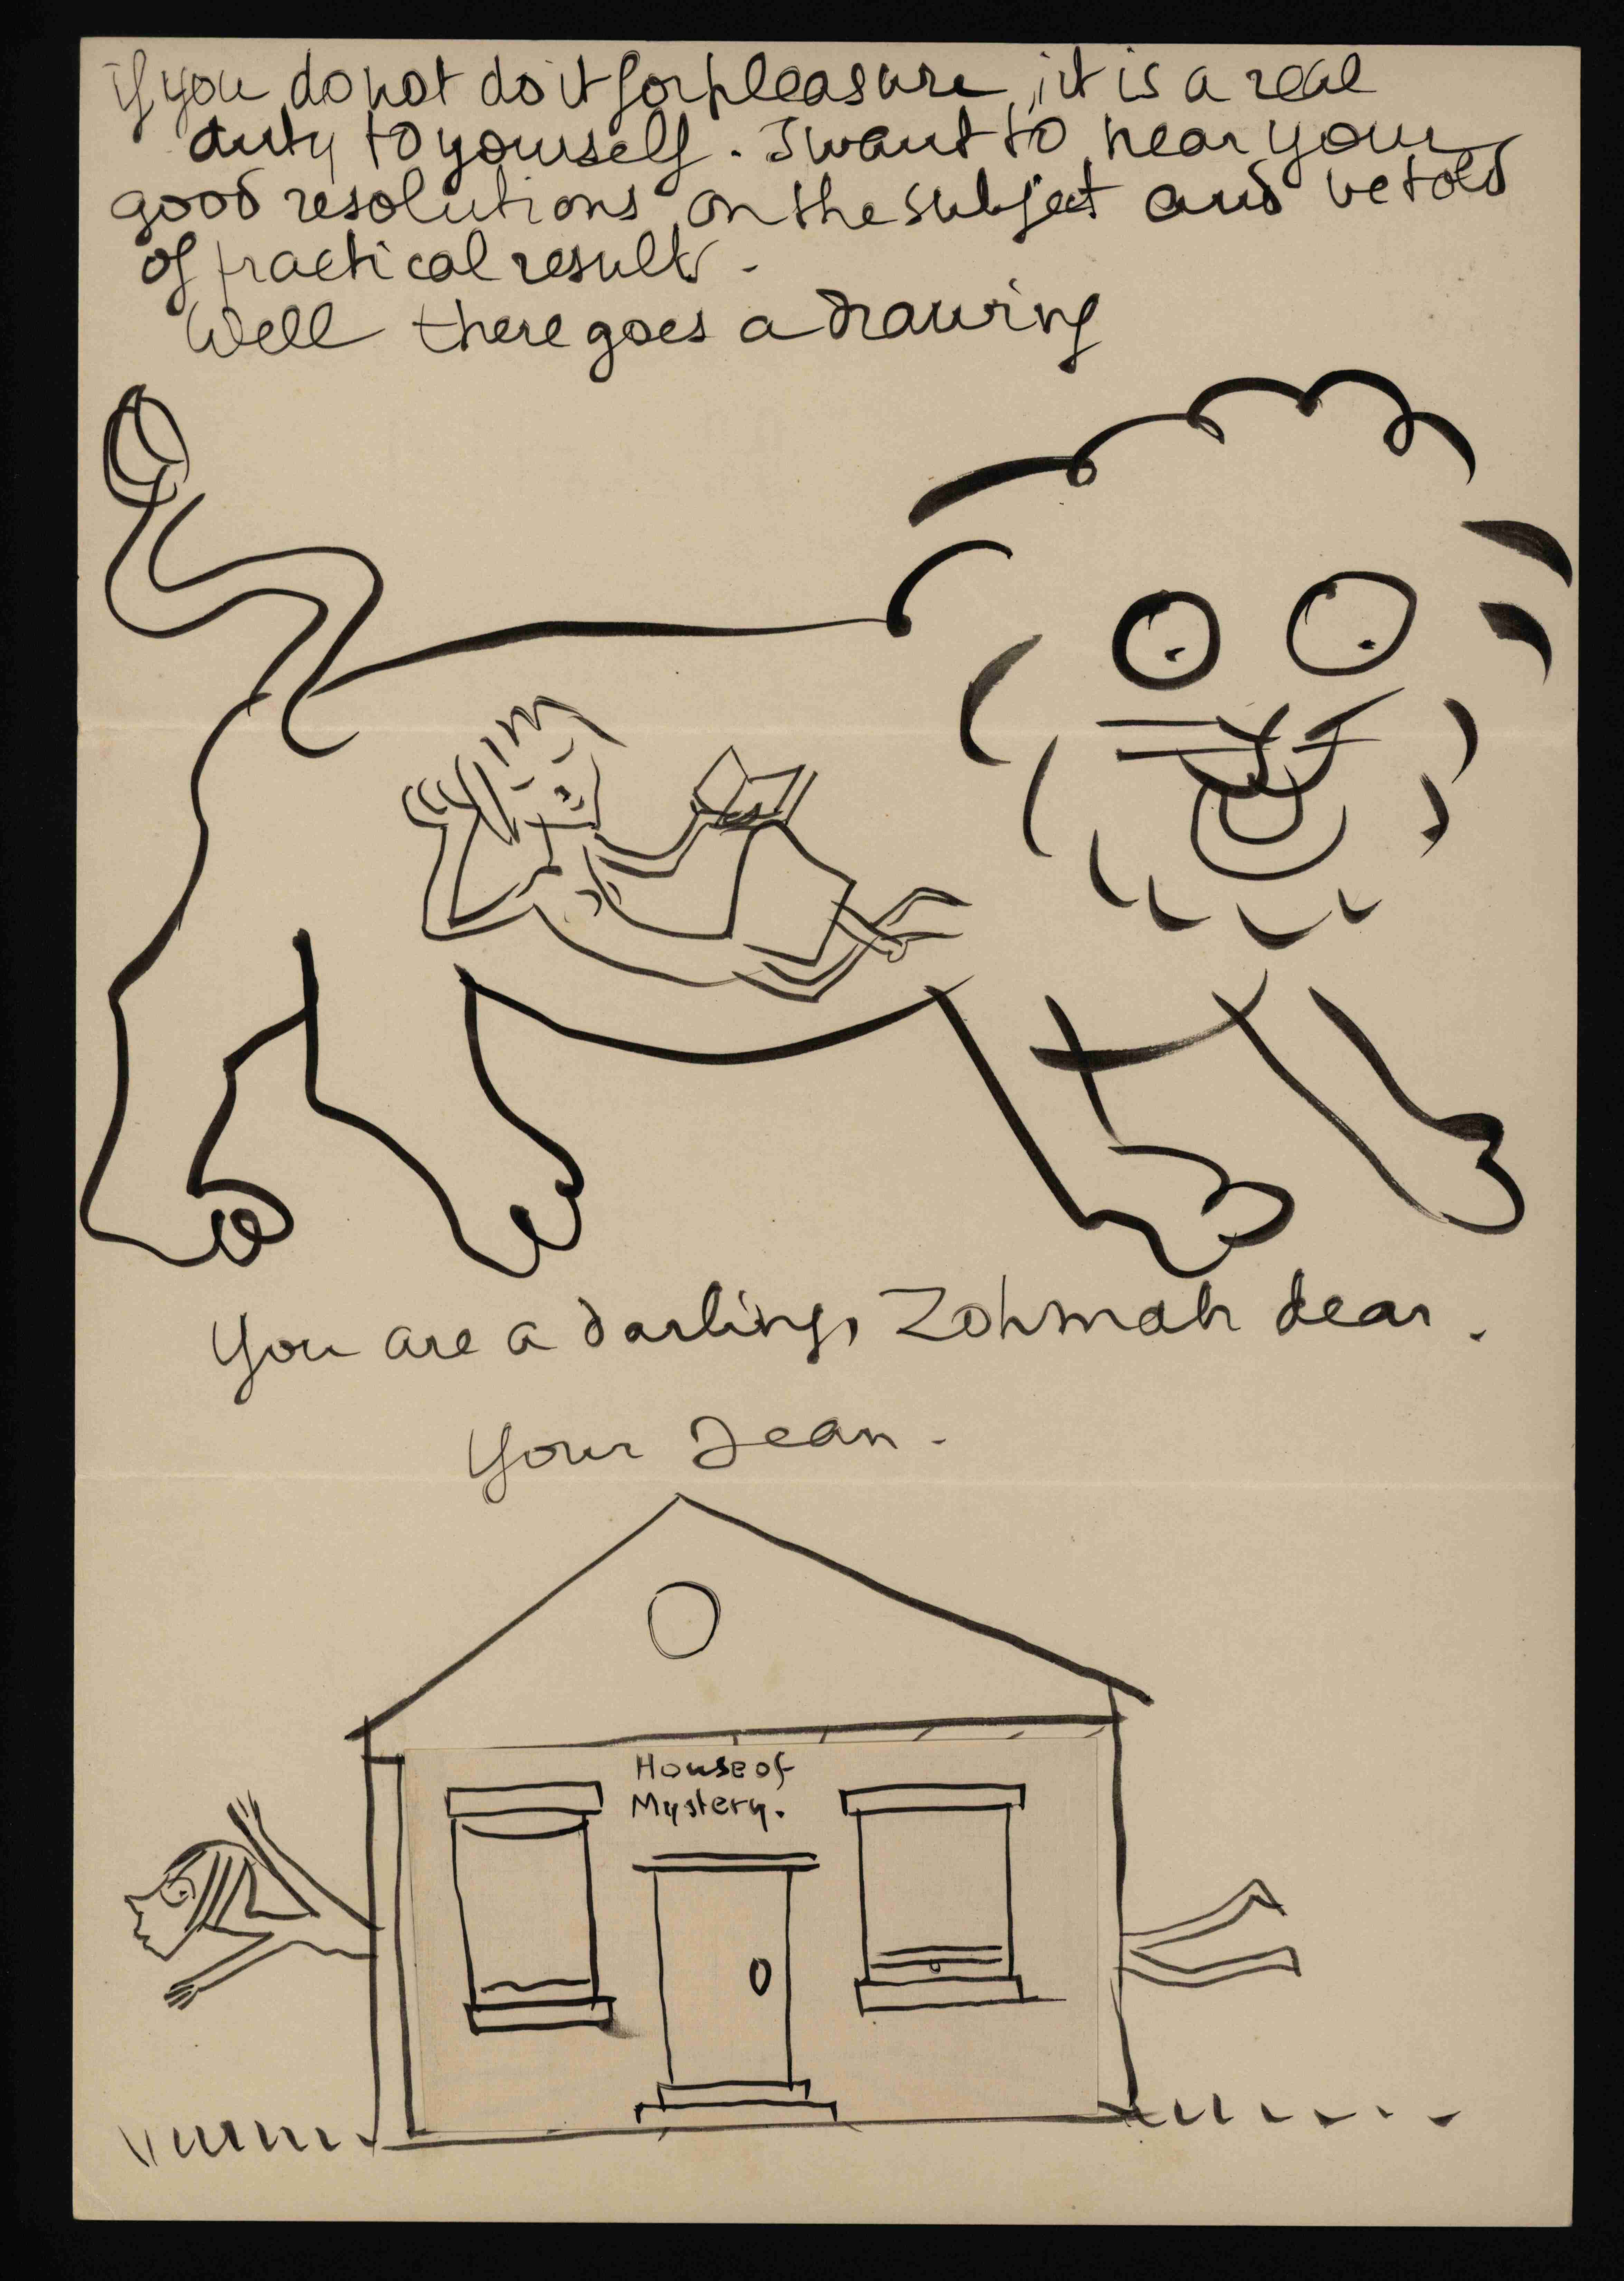 if you do not do it for pleasure, it is a real
duty to yourself. I want to hear your
good resolutions on the subject and be told
of practical results.
Well there goes a drawing
You are a darling, Zohmah dear.
Your Jean.
House of
Mystery.